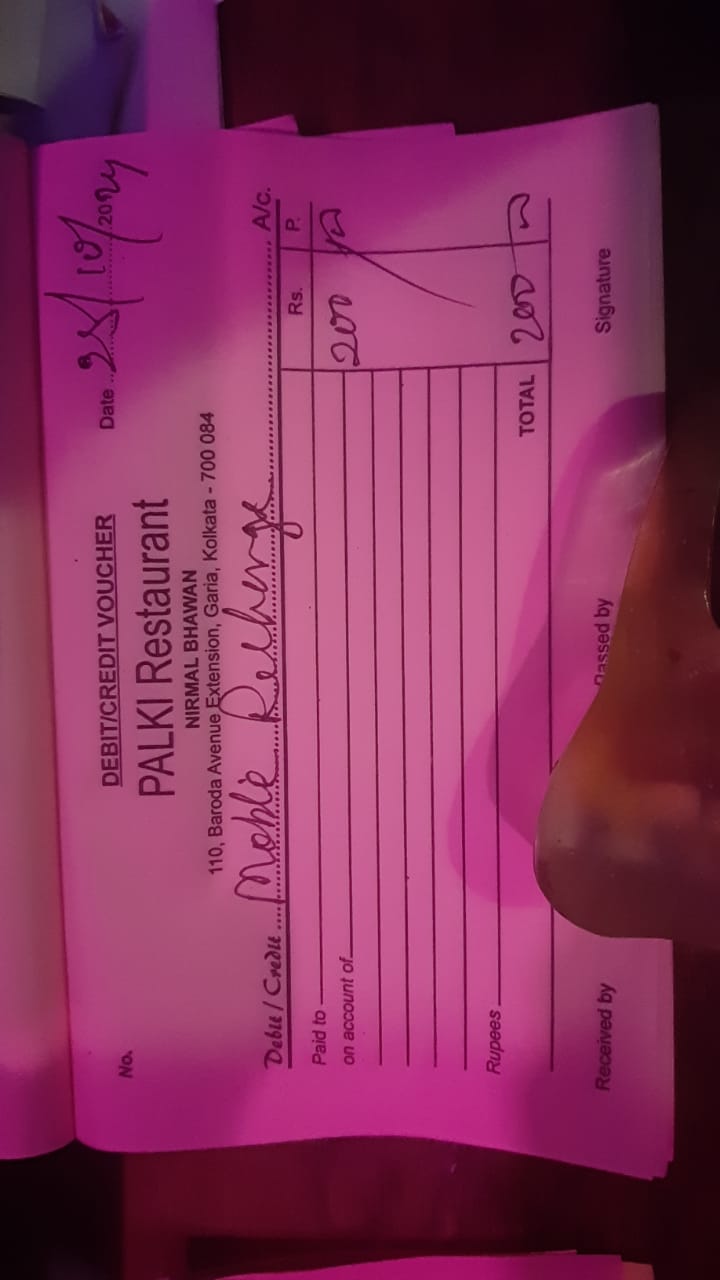 DEBIT/CREDIT VOUCHER
No.
Date 25/10/2024
PALKI Restaurant
NIRMAL BHAWAN
110, Baroda Avenue Extension, Garia, Kolkata - 700 084
Debit / Credit Moble Recherge A/c.
Rs. P.
Paid to
on account of
200
Rupees
TOTAL 200
Received by Passed by Signature